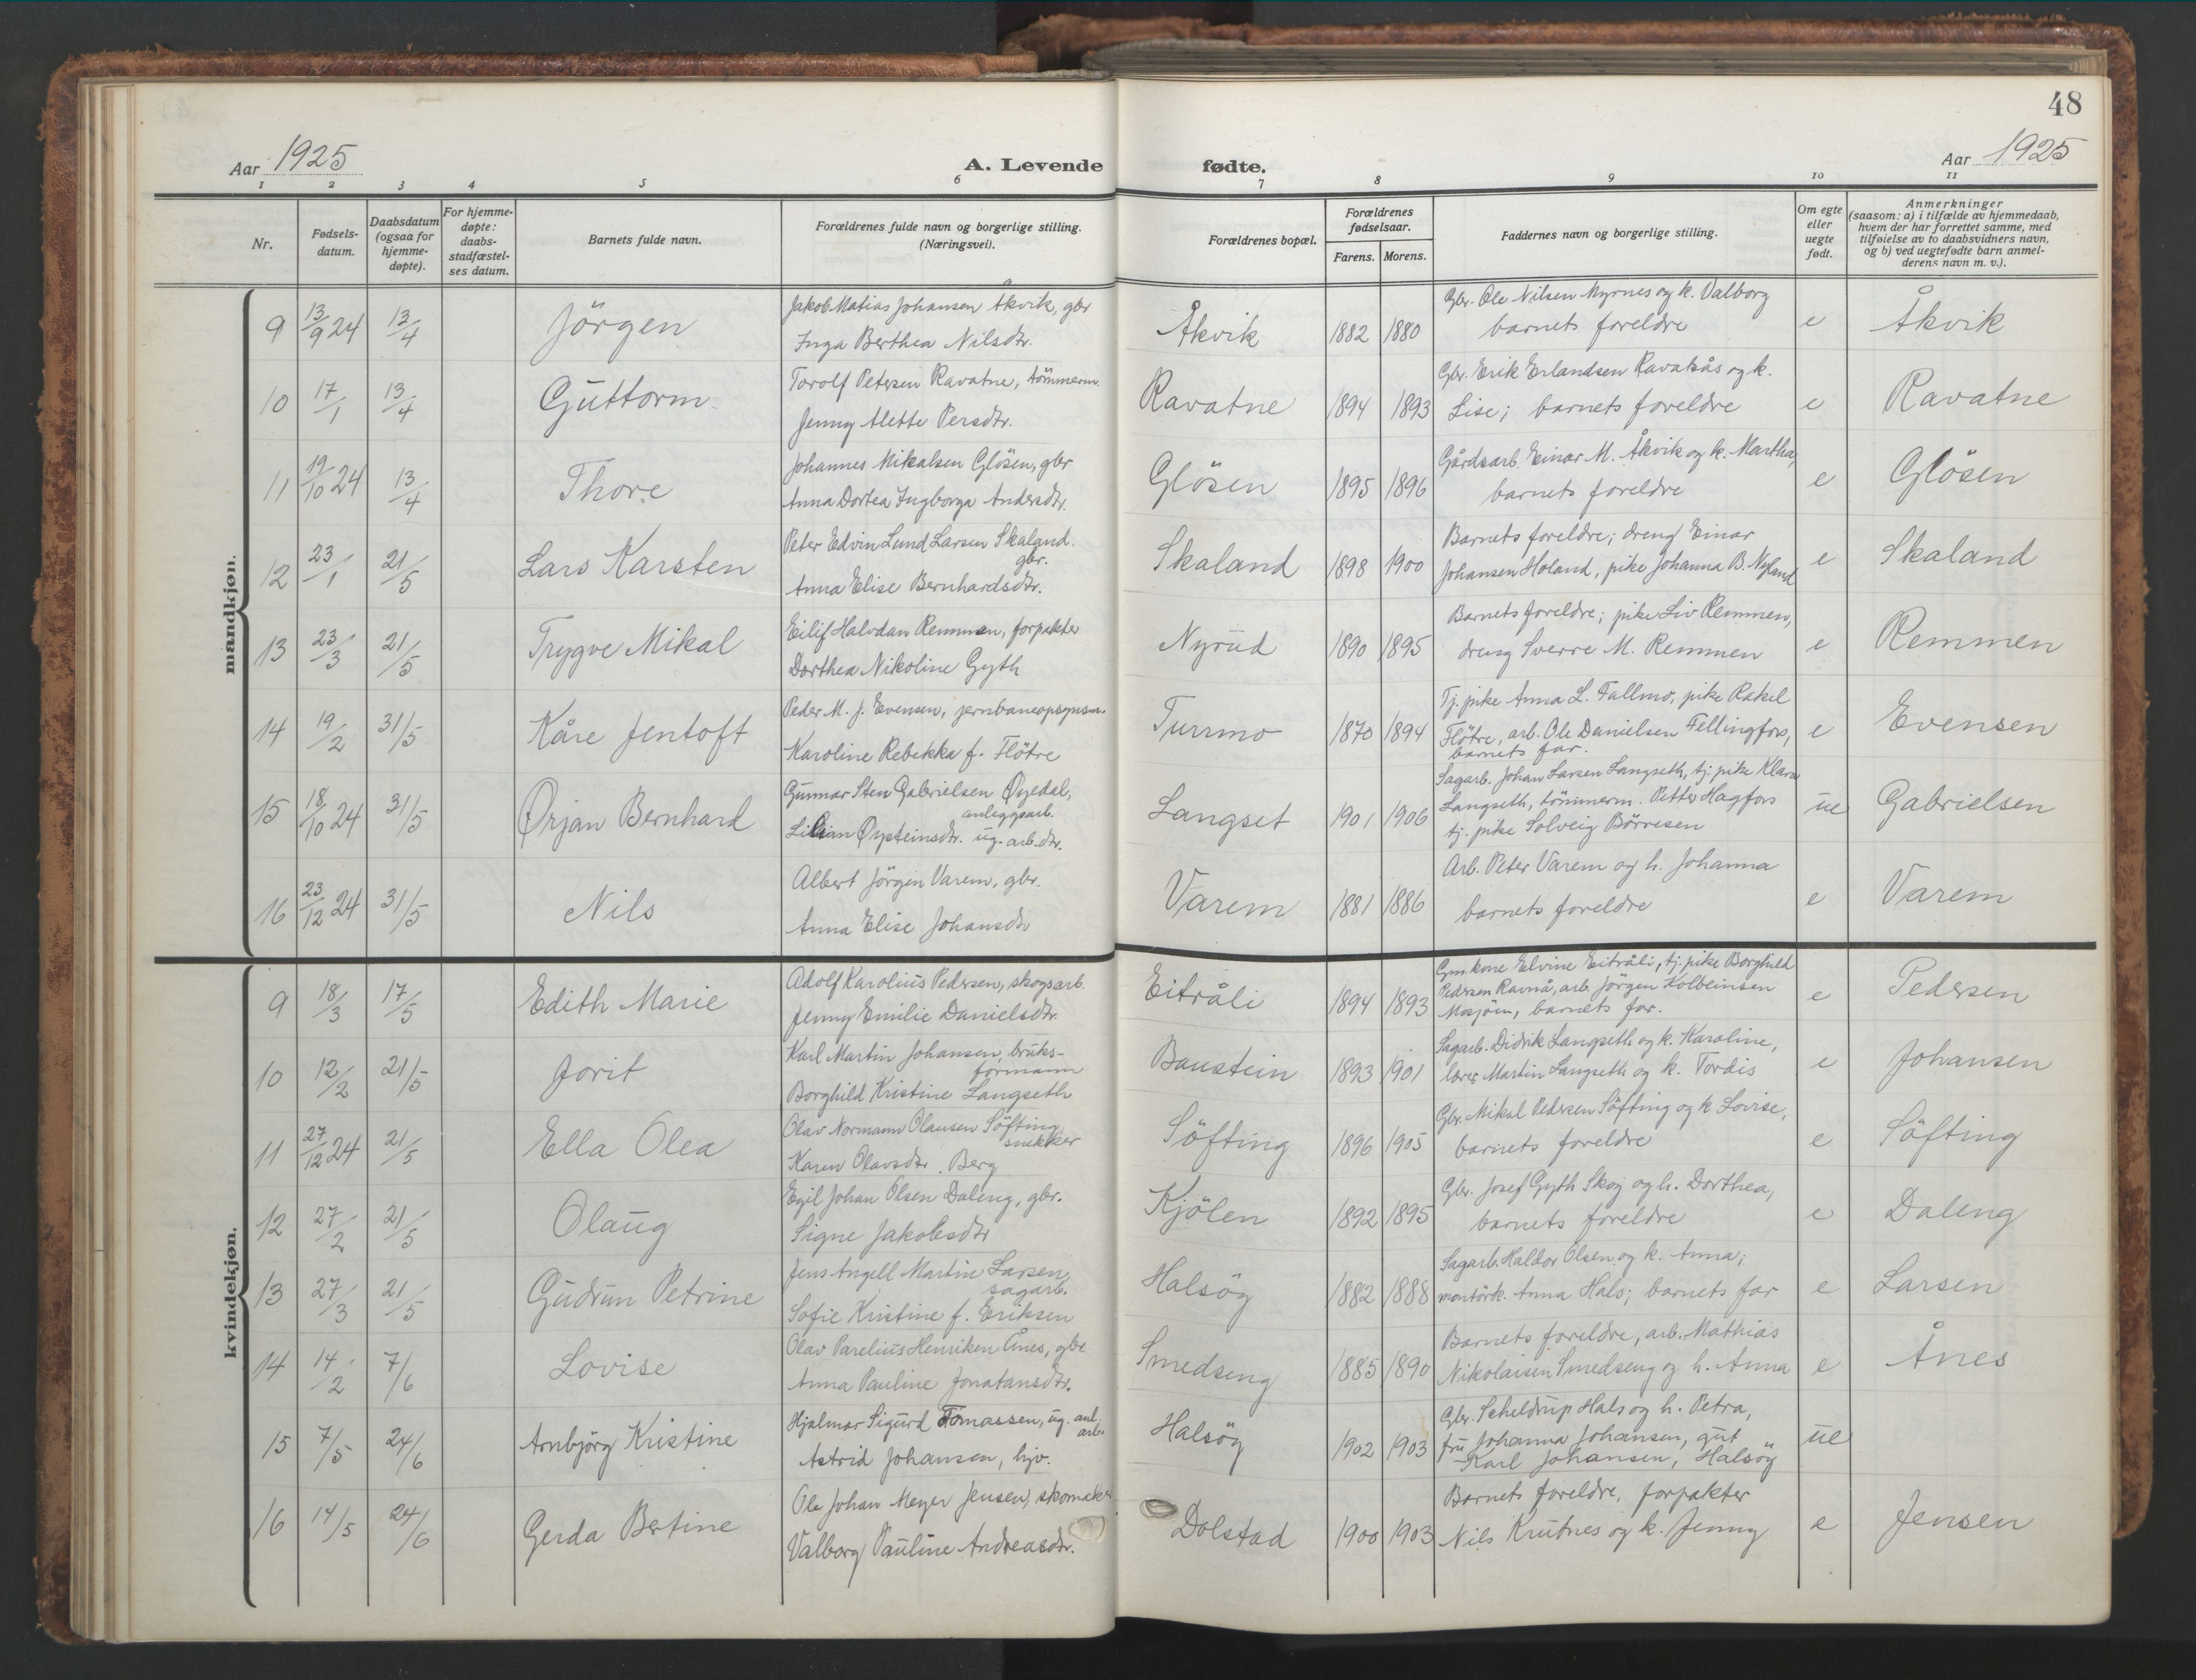 48
Aar 1925
A. Levende fødte.
Aar 1925
1 2 3 4 5 6 7 8 9 10 11
Nr.
Fødsels-
datum.
Daabsdatum
(ogsaa for
hjemme-
døpte).
For hjemme-
døpte:
daabs-
stadfæstel-
ses datum.
Barnets fulde navn.
Forældrenes fulde navn og borgerlige stilling.
(Næringsvei).
Forældrenes bopæl.
Forældrenes
fødselsaar.
Farens. Morens.
Faddernes navn og borgerlige stilling.
Om egte
eller
uegte
født.
Anmerkninger
(saasom: a) i tilfælde av hjemmedaab,
hvem der har forrettet samme, med
tilføielse av to daabsvidners navn,
og b) ved uegtefødte barn anmel-
derens navn m. v.).
mandkjøn.
9 13/9 24 13/4 Jörgen
Jakob Matias Johansen Åkvik, gbr
Inga Berthea Nilsdtr.
Åkvik 1882 1880
Gbr. Ole Nilsen Myrnes og k. Valborg
barnets foreldre
e Åkvik
10 17/1 13/4 Guttorm
Torolf Petersen Ravatne, tömmerm.
Jenny Alette Persdtr.
Ravatne 1894 1893
Gbr. Erik Erlandsen Ravatsås og k.
Lise; barnets foreldre
e Ravatne
11 19/10 24 13/4 Thore
Johannes Mikalsen Glösen, gbr
Anna Dortea Ingborga Andersdtr.
Glösen 1895 1896
Gårdsarb. Einar M. Åkvik og k. Martha,
barnets foreldre
e Glösen
12 23/1 21/5 Lars Karsten
Peter Edvin Lund Larsen Skaland.
gbr.
Anna Elise Bernhardsdtr.
Skaland 1898 1900
Barnets foreldre; dreng Einar
Johansen Holand, pike Johanna B. Nyland
e Skaland
13 23/3 21/5 Trygve Mikal
Eilif Halvdan Remmen, forpakter
Dorthea Nikoline Gyth
Nyrud 1890 1895
Barnets foreldre; pike Liv Remmen,
dreng Sverre M. Remmen
e Remmen
14 19/2 31/5 Kåre Jentoft
Peder M. J. Evensen, jernbaneopsynsm.
Karoline Rebekka f. Flötre
Turrmo 1870 1894
Tj. pike Anna L. Fallmo, pike Rakel
Flötre, arb. Ole Danielsen Fellingfors,
barnets far.
e Evensen
15 18/10 24 31/5 Ørjan Bernhard
Gunnar Sten Gabrielsen Øyedal,
anleggsarb.
Lilian Øysteinsdtr. ug. arb. dtr.
Langset 1901 1906
Sagarb. Johan Larsen Langseth, tj. pike Klara
Langseth, tömmerm. Petter Hagfors
tj. pike Solveig Börresen
ue Gabrielsen
16 23/12 24 31/5 Nils
Albert Jörgen Varem, gbr.
Anna Elise Johansdtr
Varem 1881 1886
Arb. Peter Varem og h. Johanna
barnets foreldre
e Varem
kvindekjøn.
9 18/3 17/5 Edith Marie
Adolf Karolius Pedersen, skogsarb.
Jenny Emilie Danielsdtr.
Eitråli 1894 1893
Gm.kone Elvine Eitråli, tj. pike Borghild
Pedersen Ravnå, arb. Jörgen Kolbeinsen
Mosjöen, barnets far.
e Pedersen
10 12/2 21/5 Jorit
Karl Martin Johansen, bruks-
formann
Borghild Kristine Langseth
Baustein 1893 1901
Sagarb. Didrik Langseth og k. Karoline,
lærer Martin Langseth og k. Tordis
e Johansen
11 27/12 24 21/5 Ella Olea
Olav Normann Olausen Söfting
snekker
Karen Olavsdtr. Berg
Söfting 1896 1905
Gbr. Mikal Pedersen Söfting og k Lovise,
barnets foreldre
e Söfting
12 27/2 21/5 Olaug
Egil Johan Olsen Daleng, gbr.
Signe Jakobsdtr
Kjölen 1892 1895
Gbr. Josef Gyth Skog og h. Dorthea,
barnets foreldre
e Daleng
13 27/3 21/5 Gudrun Petrine
Jens Angell Martin Larsen
sagarb.
Sofie Kristine f. Eriksen
Halsöy 1882 1888
Sagarb. Haldor Olsen og k. Anna;
montörk. Anna Hals; barnets far
e Larsen
14 14/2 7/6 Lovise
Olav Parelius Henriken Ånes, gbr
Anna Pauline Jonatansdtr.
Smedseng 1885 1890
Barnets foreldre, arb. Mathias
Nikolaisen Smedseng og h. Anna
e Ånes
15 7/5 24/6 Arnbjörg Kristine
Hjalmar Sigurd Tomassen, ug. anl.
arb.
Astrid Johansen, hjv.
Halsöy 1902 1903
Gbr. Scheldrup Hals og h. Petra,
fru Johanna Johansen, gut
Karl Johansen, Halsöy
ue
16 14/5 24/6 Gerda Bertine
Ole Johan Meyer Jensen, skomaker
Valborg Pauline Andreasdtr.
Dolstad 1900 1903
Barnets foreldre, forpakter
Nils Krutnes og k. Jenny
e Jensen